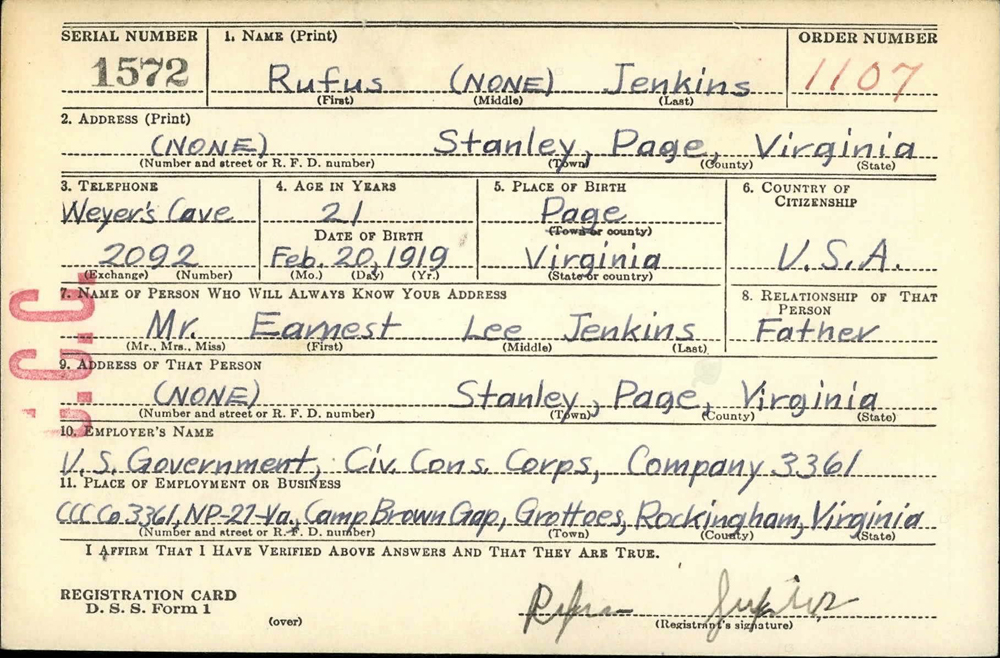 SERIAL NUMBER 1. NAME (Print) ORDER NUMBER
1572 Rufus (NONE) Jenkins 1107
(First) (Middle) (Last)
2. ADDRESS (Print)
(NONE) Stanley, Page, Virginia
(Number and street or R. F. D. number) (Town) (County) (State)
3. TELEPHONE 4. AGE IN YEARS 5. PLACE OF BIRTH 6. COUNTRY OF CITIZENSHIP
Weyer's Cave 21 Page
DATE OF BIRTH (Town or county)
2092 Feb. 20, 1919 Virginia U.S.A.
(Exchange) (Number) (Mo.) (Day) (Yr.) (State or country)
7. NAME OF PERSON WHO WILL ALWAYS KNOW YOUR ADDRESS 8. RELATIONSHIP OF THAT PERSON
Mr. Earnest Lee Jenkins Father
(Mr., Mrs., Miss) (First) (Middle) (Last)
9. ADDRESS OF THAT PERSON
(NONE) Stanley, Page, Virginia
(Number and street or R. F. D. number) (Town) (County) (State)
10. EMPLOYER'S NAME
U.S. Government, Civ. Cons. Corps, Company 3361
11. PLACE OF EMPLOYMENT OR BUSINESS
CCC Co 3361, NP-27-Va., Camp Brown Gap, Grottoes, Rockingham, Virginia
(Number and street or R. F. D. number) (Town) (County) (State)
I AFFIRM THAT I HAVE VERIFIED ABOVE ANSWERS AND THAT THEY ARE TRUE.
REGISTRATION CARD
D. S. S. Form 1
(over)
(Registrant's signature)
C.C.C.